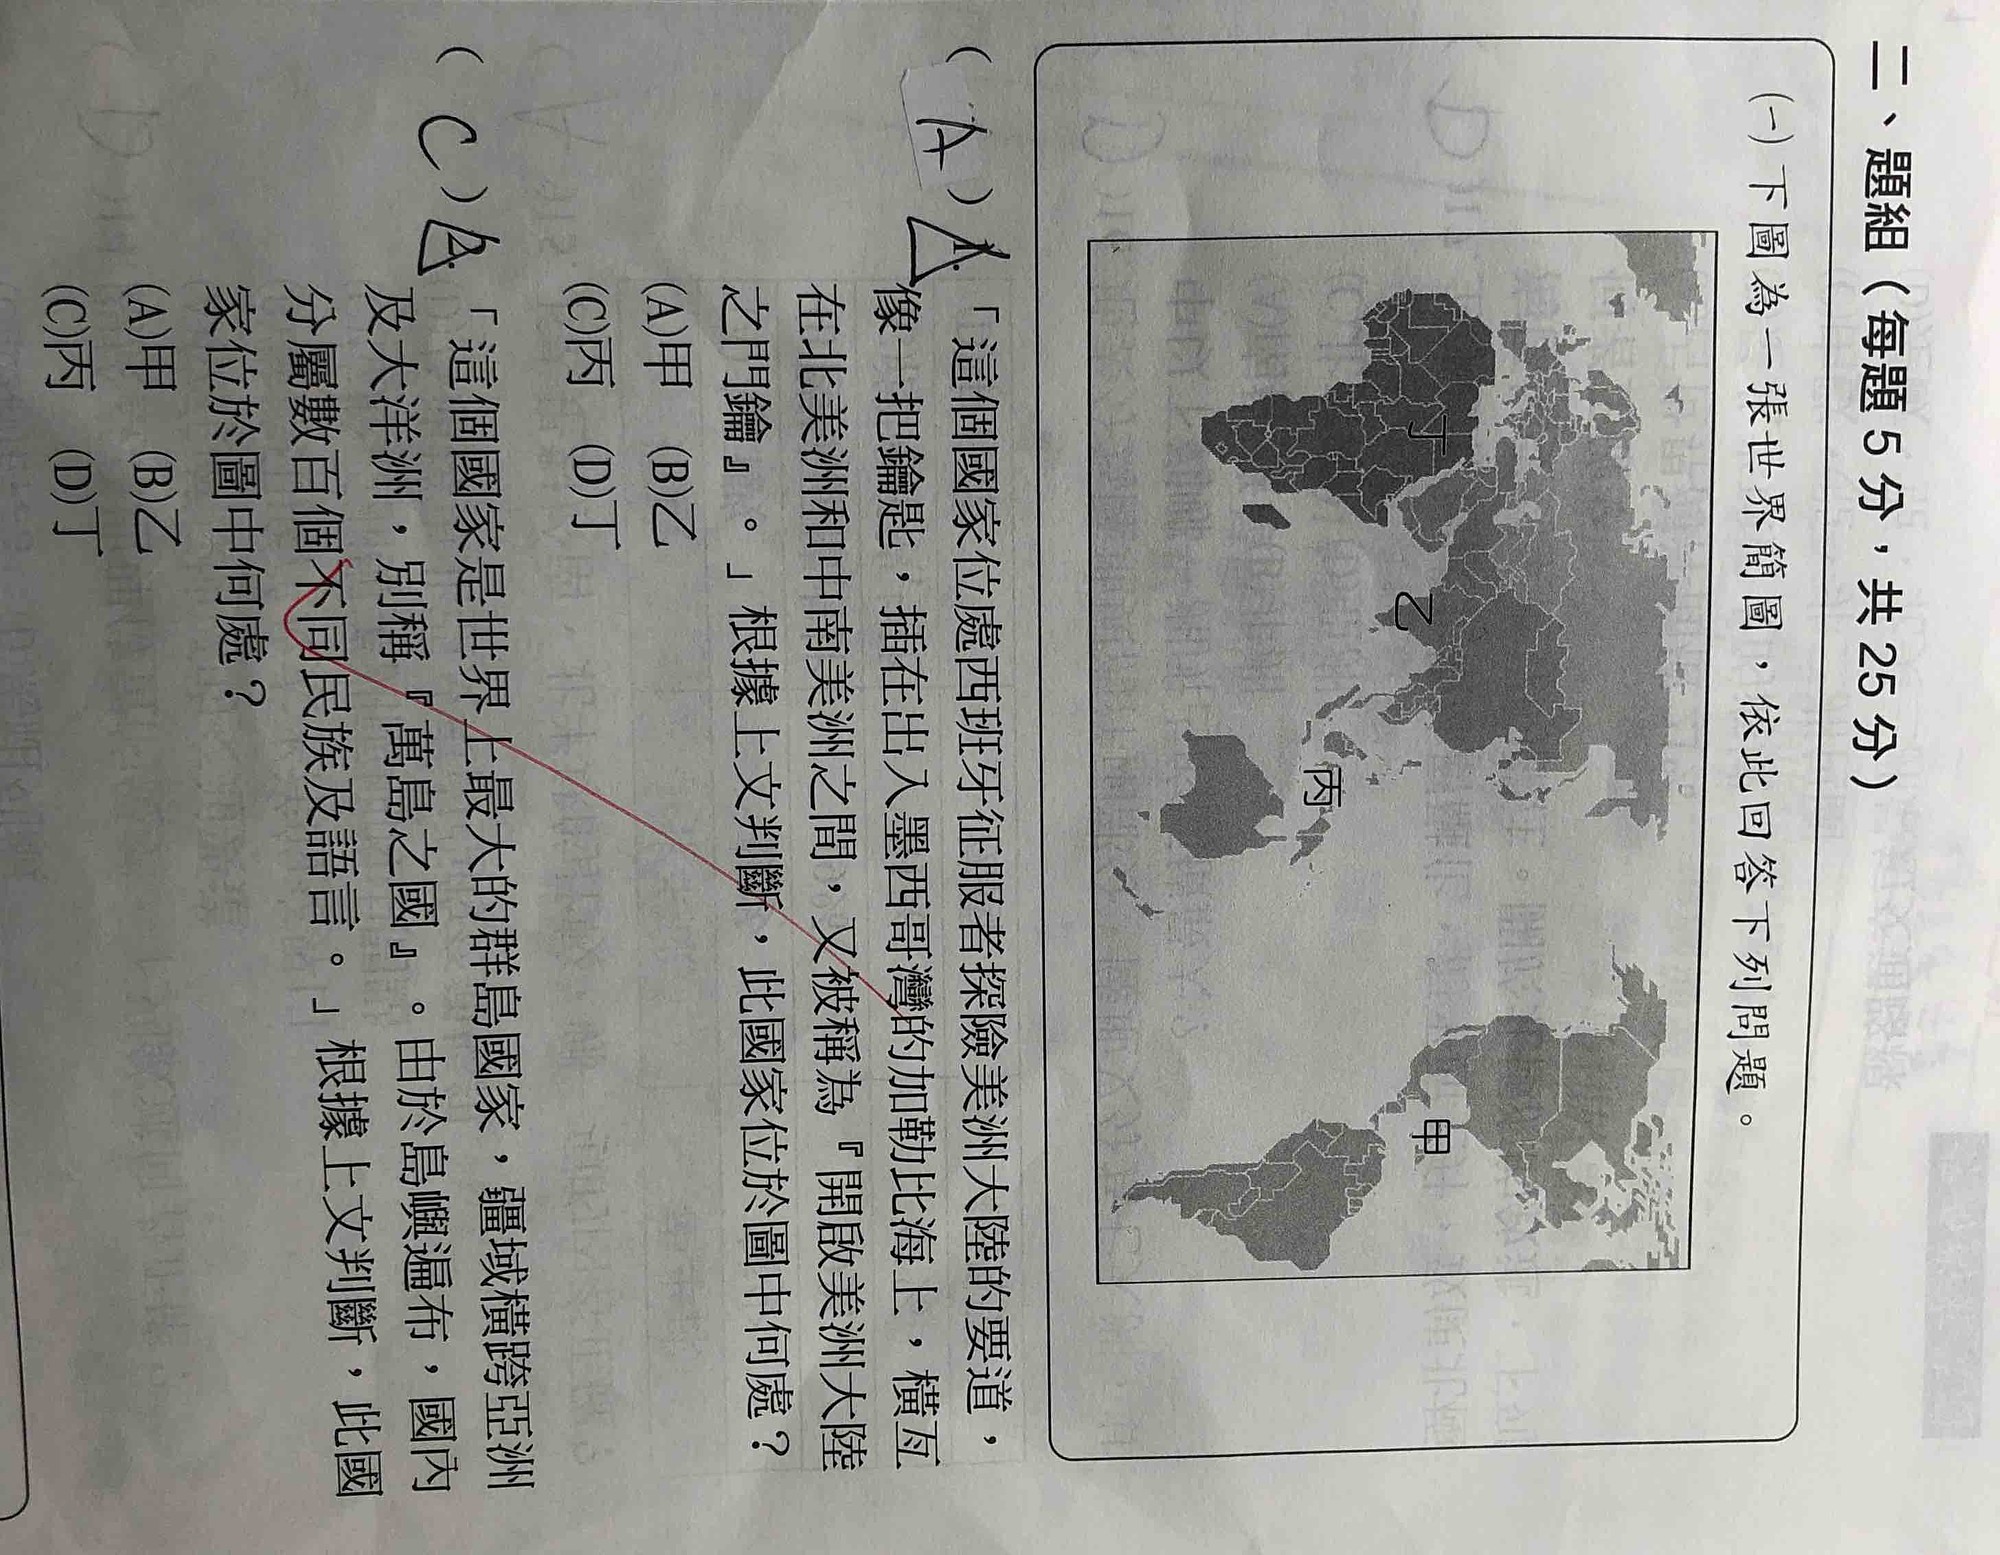 二、題組（每題5分，共25分）
(一)下圖為一張世界簡圖，依此回答下列問題。
丁
乙
丙
甲
( A ) 1.「這個國家位處西班牙征服者探險美洲大陸的要道，
像一把鑰匙，插在出入墨西哥灣的加勒比海上，橫亙
在北美洲和中南美洲之間，又被稱為『開啟美洲大陸
之門鑰』。」根據上文判斷，此國家位於圖中何處？
(A)甲 (B)乙
(C)丙 (D)丁
( C ) 2.「這個國家是世界上最大的群島國家，疆域橫跨亞洲
及大洋洲，別稱『萬島之國』。由於島嶼遍布，國內
分屬數百個不同民族及語言。」根據上文判斷，此國
家位於圖中何處？
(A)甲 (B)乙
(C)丙 (D)丁